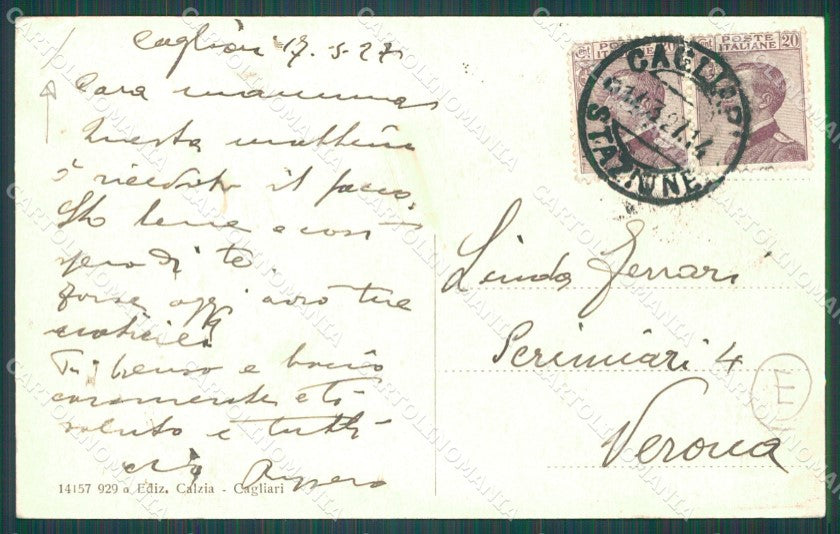 Cagliari 17-3-27
Cara mamma
Questa mattina
ò ricevuto il pacco
Sto bene e così
spero di te.
Forse oggi avrò tue
notizie.
Ti penso e bacio
caramente e ti
saluto e tutti
14157 929 a Ediz. Calzia - Cagliari
POSTE ITALIANE 20
POSTE ITALIANE 20
CAGLIARI
STAZIONE
Linda Ferrari
Scrimiari 4
Verona
E
CARTOLINOMANIA